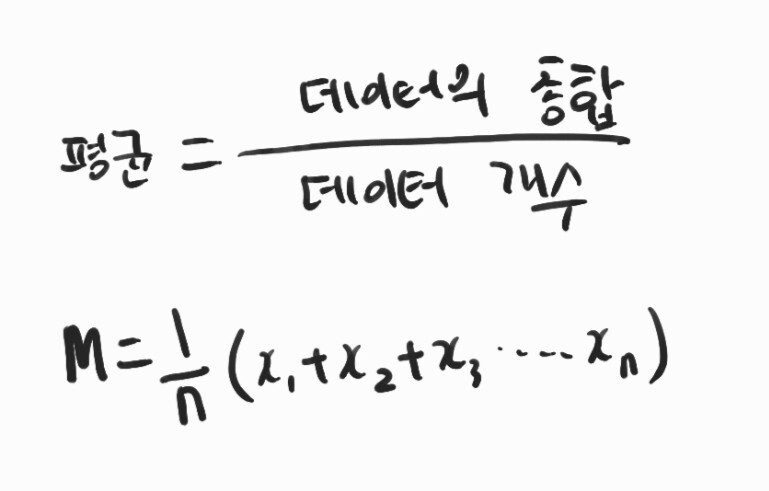 평균 = 데이터의 총합 / 데이터 개수
M = 1/n (x₁+x₂+x₃ ····· xₙ)